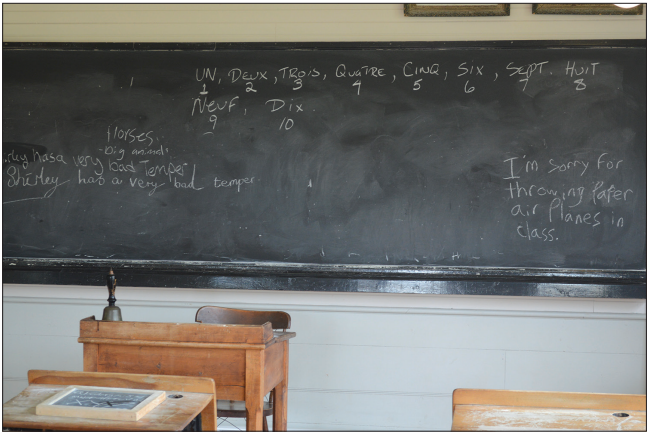 UN, DEUX, TROIS, QUATRE, CINQ, SIX, SEPT. HUIT
1 2 3 4 5 6 7 8
NEUF, DIX
9 10
Horses.
Big animals
has a very bad Temper
Shirley has a very bad temper.
I'm sorry for
throwing Paper
air Planes in
class.